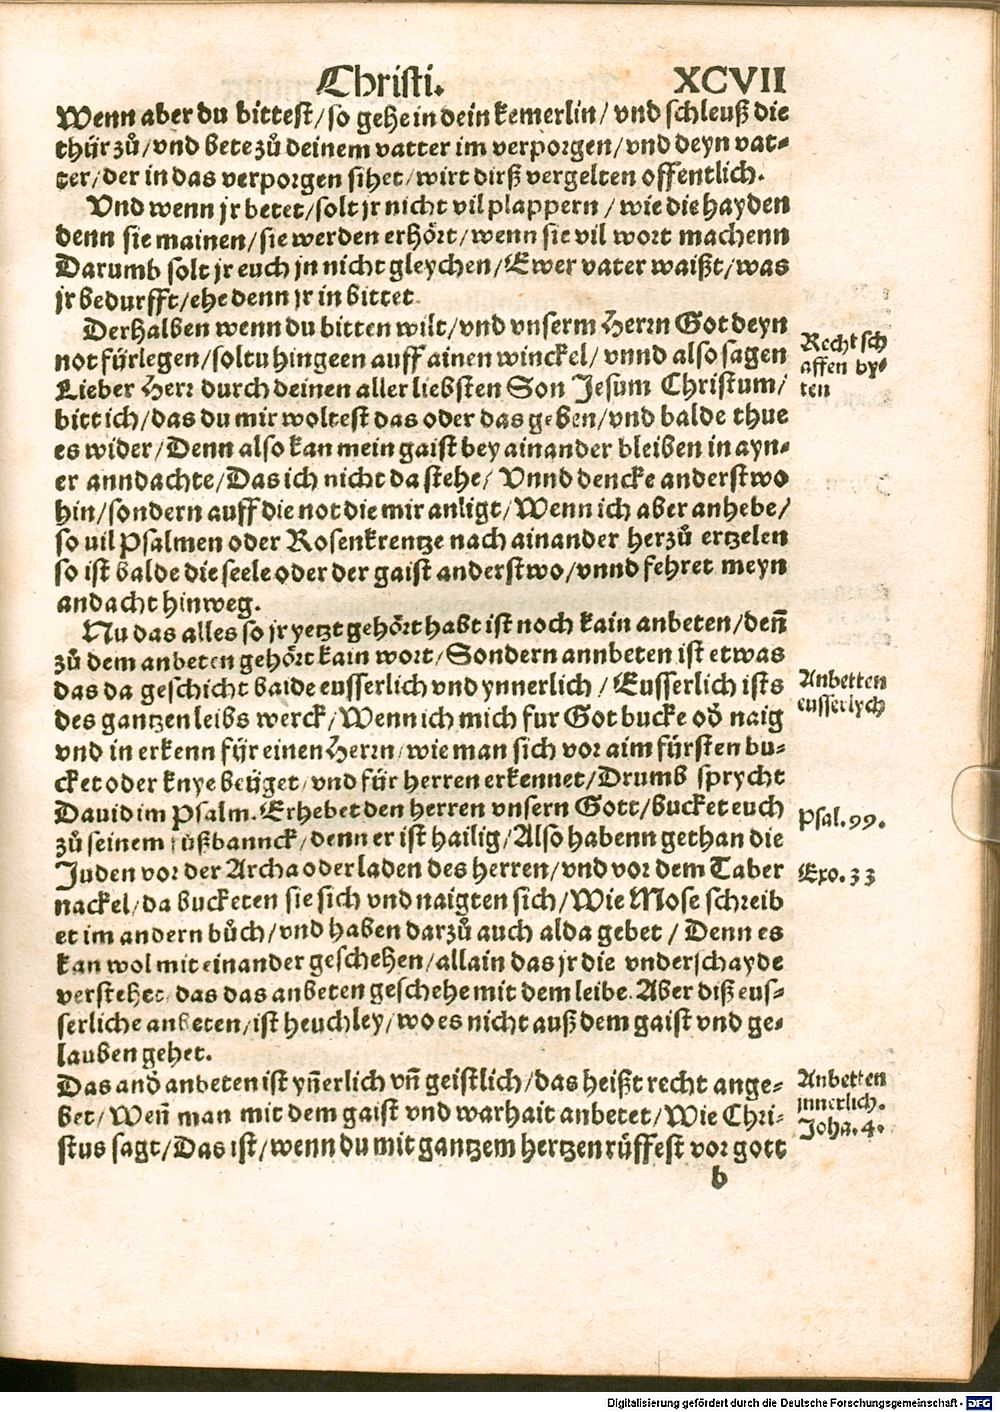 Christi. XCVII
Wenn aber du bittest/so gehe in dein kemerlin/ vnd schleuß die
thür zů/vnd bete zů deinem vatter im verporgen/vnd deyn vat-
ter/der in das verporgen sihet/wirt dirß vergelten offentlich.
Vnd wenn jr betet/solt jr nicht vil plappern / wie die hayden
denn sie mainen/sie werden erhört/wenn sie vil wort machenn
Darumb solt jr euch jn nicht gleychen/Ewer vater waißt/was
jr bedurfft/ehe denn jr in bittet.
Derhalben wenn du bitten wilt/vnd vnserm Herrn Got deyn
not fürlegen/soltu hingeen auff ainen winckel/ vnnd also sagen
Lieber Herr durch deinen aller liebsten Son Jesum Christum/
bitt ich/das du mir woltest das oder das geben/vnd balde thue
es wider/Denn also kan mein gaist bey ainander bleiben in ayn-
er anndachte/Das ich nicht da stehe/ Vnnd dencke anderst wo
hin/sondern auff die not die mir anligt/Wenn ich aber anhebe/
so uil Psalmen oder Rosenkrentze nach ainander herzů ertzelen
so ist balde die seele oder der gaist anderst wo/vnnd fehret meyn
andacht hinweg.
Nu das alles so jr yetzt gehört habt ist noch kain anbeten/deñ
zů dem anbeten gehört kain wort/Sondern annbeten ist etwas
das da geschicht baide eusserlich vnd ynnerlich / Eusserlich ists
des gantzen leibs werck/Wenn ich mich fur Got bucke oď naig
vnd in erkenn für einen Herrn/wie man sich vor aim fürsten bu-
cket oder knye beüget/vnd für herren erkennet/Drumb sprycht
Dauid im Psalm. Erhebet den herren vnsern Gott/bucket euch
zů seinem fůßbannck/denn er ist hailig/Also habenn gethan die
Juden vor der Archa oder laden des herren/vnd vor dem Taber
nackel/da bucketen sie sich vnd naigten sich/Wie Mose schreib
et im andern bůch/vnd haben darzů auch alda gebet / Denn es
kan wol mit einander geschehen/allain das jr die vnderschayde
verstehet/das das anbeten geschehe mit dem leibe. Aber diß eus-
serliche anbeten/ist heuchley/wo es nicht auß dem gaist vnd ge-
lauben gehet.
Das anď anbeten ist yñerlich vñ geistlich/das heißt recht ange-
bet/Weñ man mit dem gaist vnd warhait anbetet/Wie Chri-
stus sagt/Das ist/wenn du mit gantzem hertzen rüffest vor gott
b
Recht sch
affen by-
ten
Anbetten
eusserlych
Psal.99.
Exo.33
Anbetten
jnnerlich.
Joha.4.
Digitalisierung gefördert durch die Deutsche Forschungsgemeinschaft - DFG